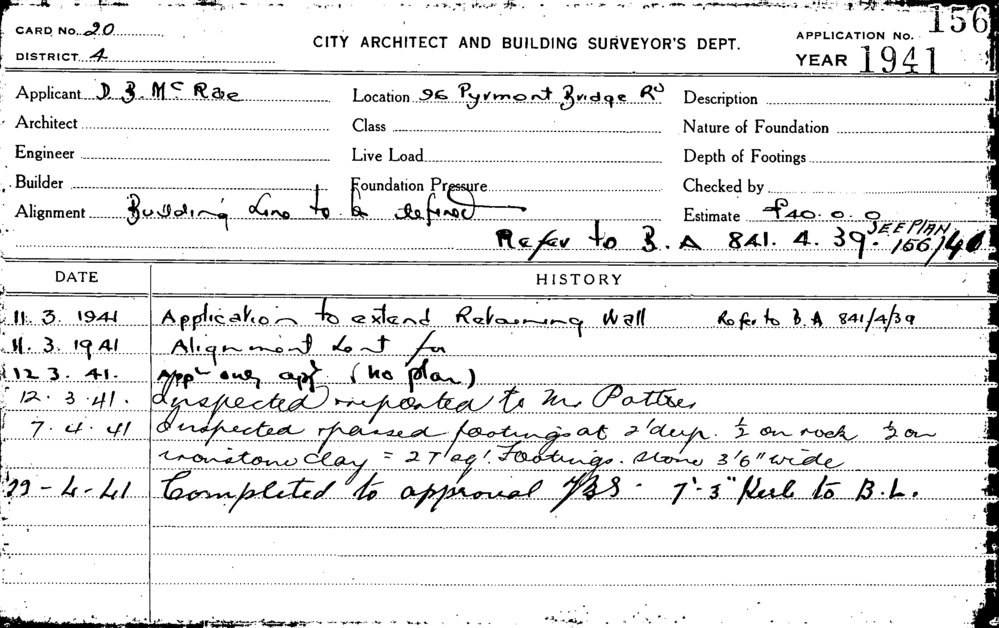 CARD No. 20
DISTRICT 4
CITY ARCHITECT AND BUILDING SURVEYOR'S DEPT.
APPLICATION No. 156
YEAR 1941
Applicant D B. McRae
Location 96 Pyrmont Bridge Rd
Description
Architect
Class
Nature of Foundation
Engineer
Live Load
Depth of Footings
Builder
Foundation Pressure
Checked by
Alignment Building Line to be defined
Estimate £40.0.0
Refer to B.A 841.4.39. SEE PLAN 156/40
DATE
HISTORY
11.3.1941 Application to extend Retaining Wall Refer to B.A 841/4/39
11.3.1941 Alignment sent for
12 3.41. (no plan)
12.3.41. Inspected & reported to Mr
7.4.41 Inspected & passed footings at 2' deep. ½ on rock ½ on
ironstone clay = 2T sq'. Footings. stone 3'6" wide
29-4-41 Completed to approval 7'-3" Kerb to B.L.